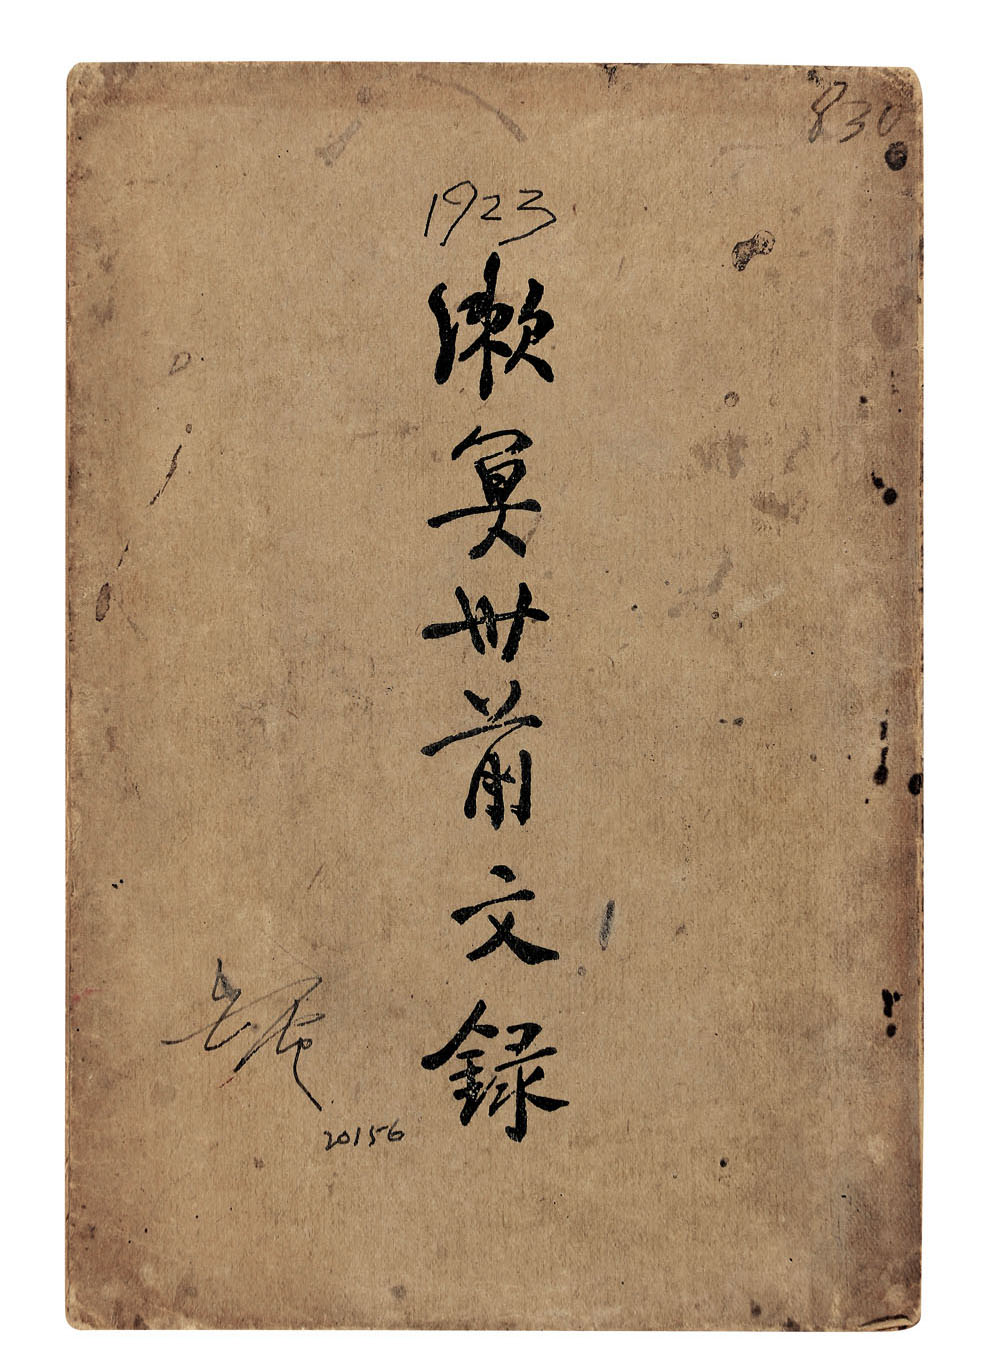 830
1923
漱冥卅前文録
20156